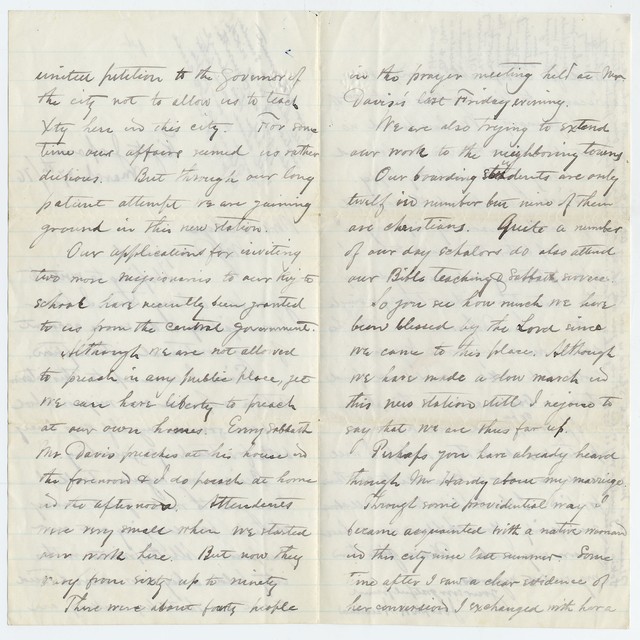 united petition to the Governor of
the city not to allow us to teach
Xty here in this city. For some
time our affairs seemed us rather
dubious. But through our long
patient attempt we are gaining
ground in this new station.
Our applications for inviting
two more missionaries to our
school have recently been granted
to us from the central government.
Although we are not allowed
to preach in any public place, yet
we can have liberty to preach
at our own homes. Every Sabbath
Mr Davis preaches at his house in
the forenoon & I do preach at home
in the afternoon. Attendents
were very small when we started
our work here. But now they
vary from sixty up to ninety
There were about fourty people
in the prayer meeting held at Mr
Davis's last Friday evening.
We are also trying to extend
our work to the neighboring towns.
Our boarding students are only
twelf in number but nine of them
are christians. Quite a number
of our day scholors do also attend
our Bible teaching & Sabbath services
So you see how much we have
been blessed by the Lord since
we came to this place. Although
we have made a slow march in
this new station still I rejoice to
say that we are thus far up.
Perhaps you have already heard
through Mr Hardy about my marriage.
Through some providential way I
became acquainted with a native woman
in this city since last summer. Some
time after I saw a clear evidence of
her conversion I exchanged with her a